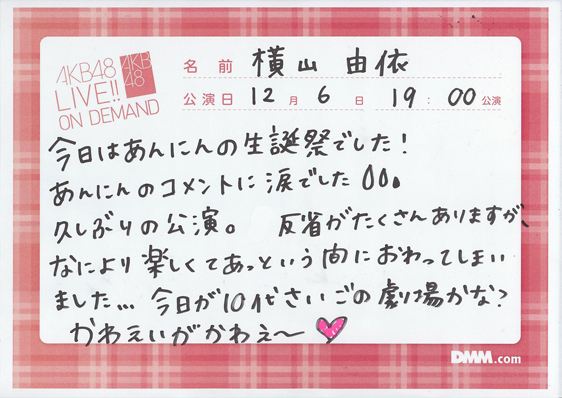 AKB48
LIVE!!
ON DEMAND
AKB
48
名前 横山 由依
公演日 12月 6日 19:00公演
今日はあんにんの生誕祭でした!
あんにんのコメントに涙でした
久しぶりの公演。 反省がたくさんありますが、
なにより楽しくてあっという間におわってしまい
ました... 今日が10代さいごの劇場かな?
かわえいがかわえ〜
DMM.com